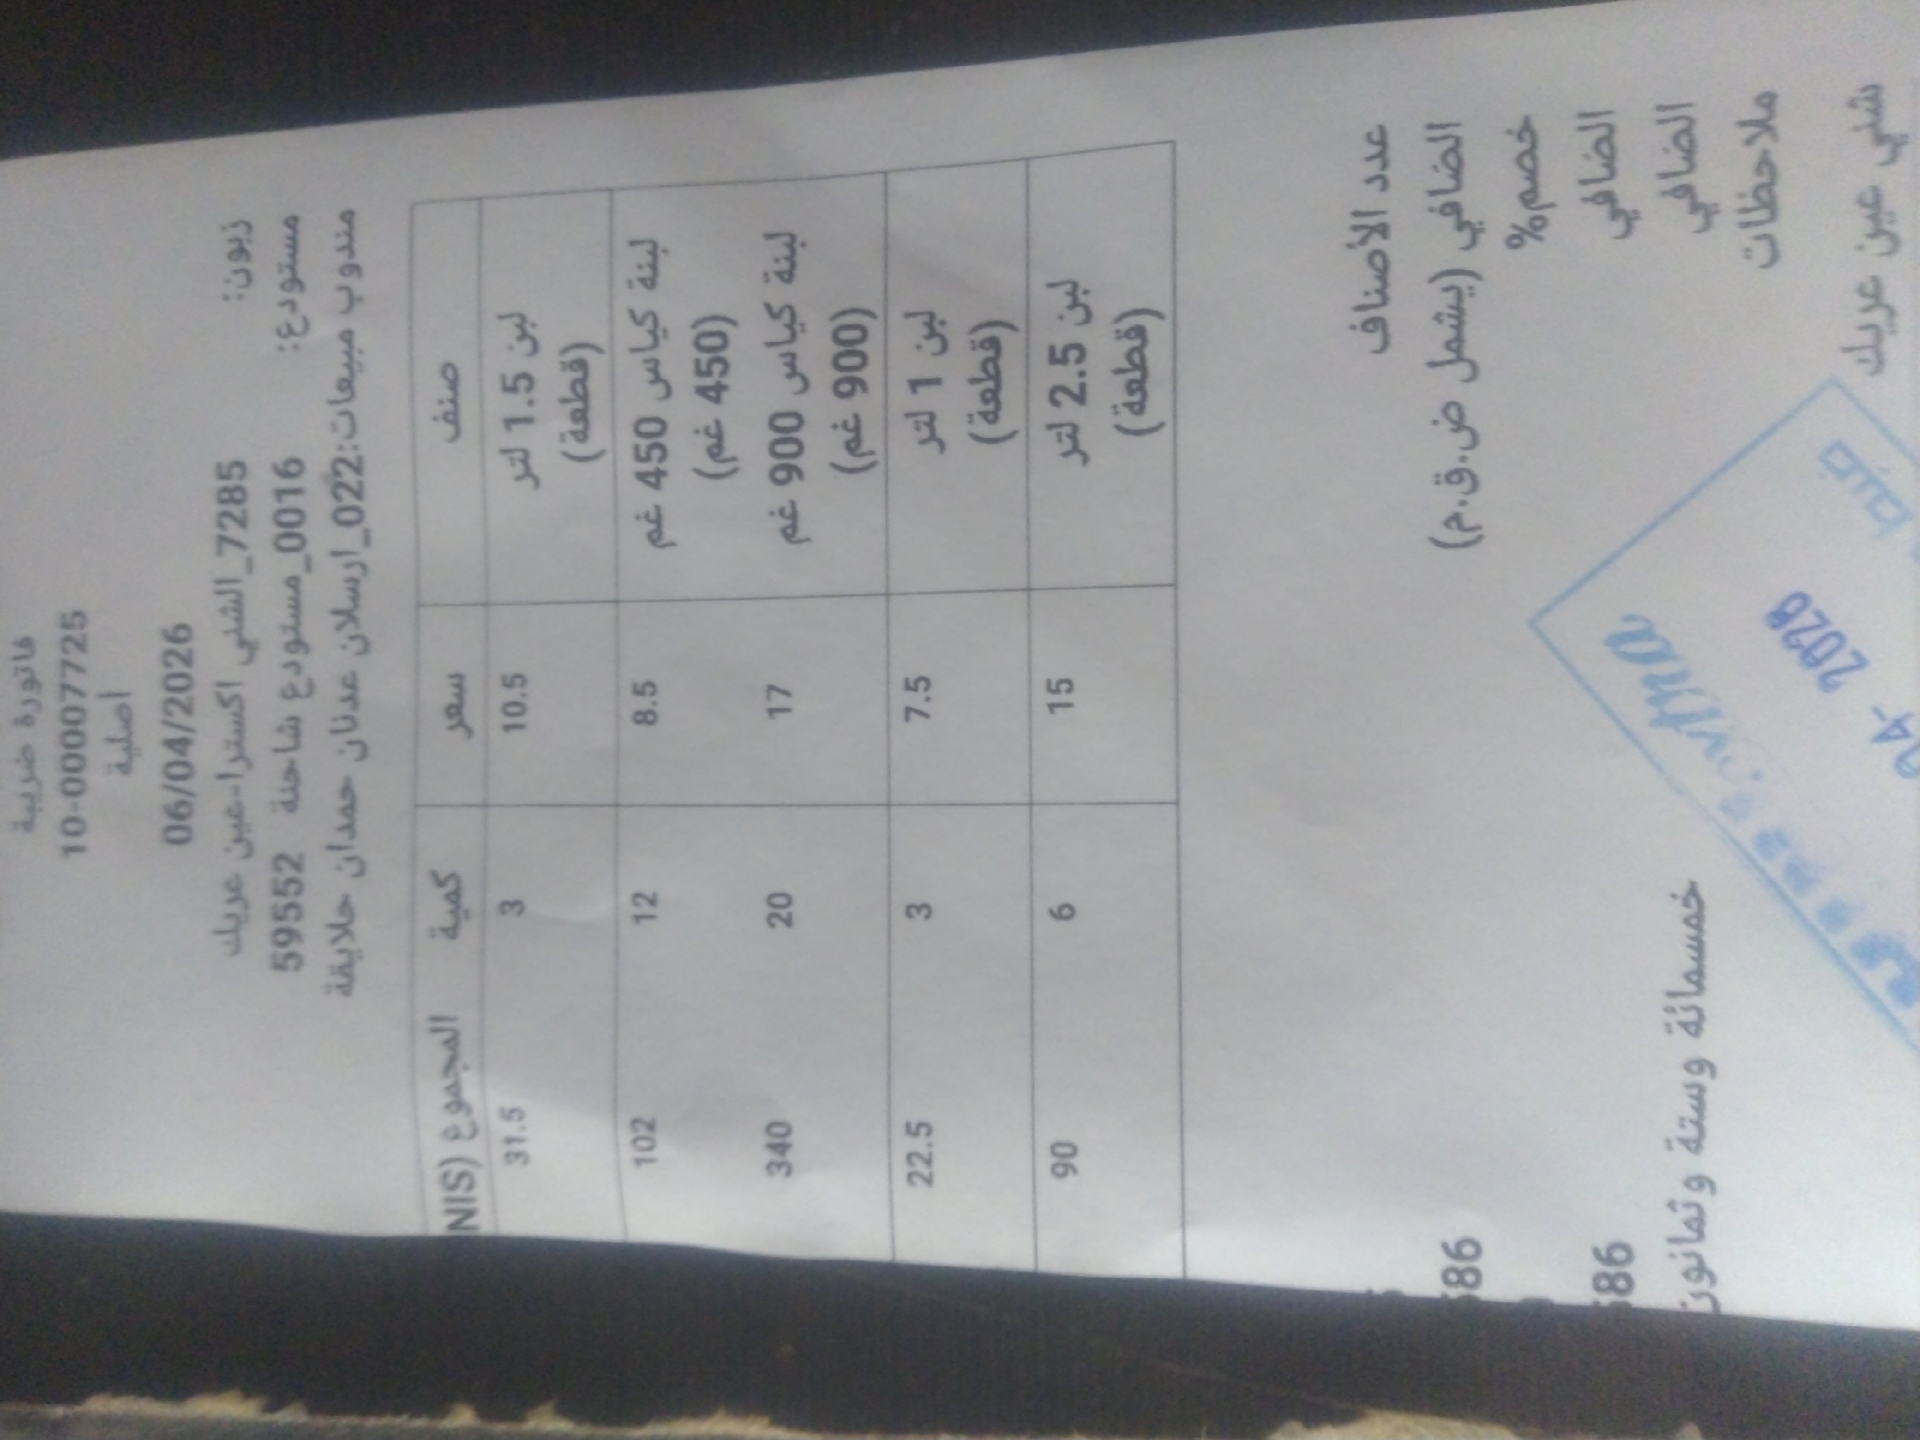 فاتورة ضريبة
10-000007725
اصلية
06/04/2026
زبون: 7285_الشني اكسترا-عين عريك
مستودع: 0016_مستودع شاحنة 59552
مندوب مبيعات:022_ارسلان عدنان حمدان حلايقة
صنف سعر كمية المجموع (NIS
لبن 1.5 لتر (قطعة) 10.5 3 31.5
لبنة كياس 450 غم (450 غم) 8.5 12 102
لبنة كياس 900 غم (900 غم) 17 20 340
لبن 1 لتر (قطعة) 7.5 3 22.5
لبن 2.5 لتر (قطعة) 15 6 90
عدد الأصناف
الصافي (يشمل ض.ق.م) 586
خصم%
الصافي 586
الصافي خمسمائة وستة وثمانون
ملاحظات
شني عين عريك